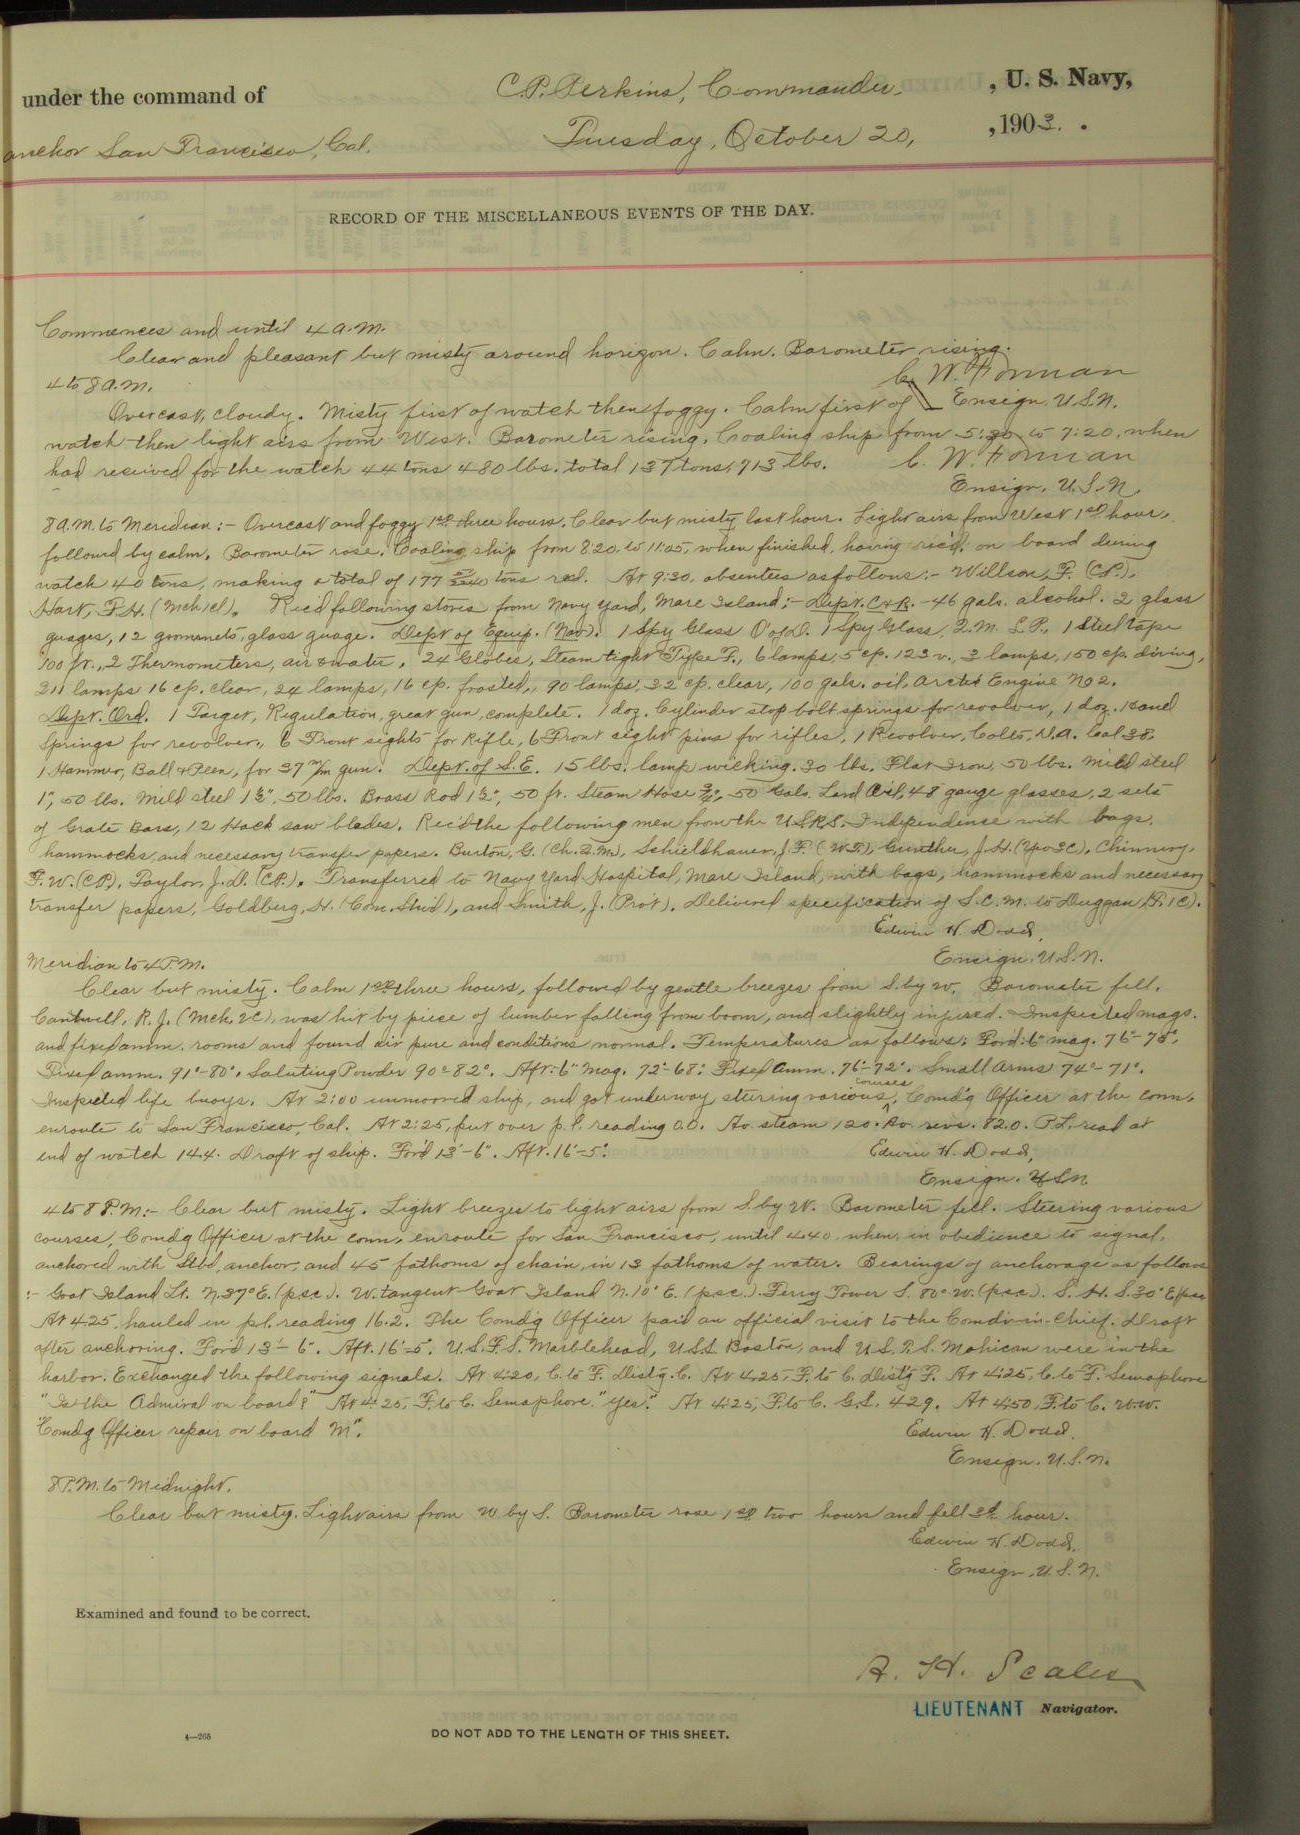 under the command of C.P. Perkins, Commander, , U. S. Navy,
anchor San Francisco, Cal. Tuesday, October 20, , 1903.
RECORD OF THE MISCELLANEOUS EVENTS OF THE DAY.
Commences and until 4 a.m.
Clear and pleasant but misty around horizon. Calm. Barometer rising.
C. W. Forman
4 to 8 a.m. Ensign, U.S.N.
Overcast, cloudy. Misty first of watch then foggy. Calm first of
watch then light airs from West. Barometer rising. Coaling ship from 5:30 to 7:20, when
had received for the watch 44 tons 480 lbs. total 137 tons, 713 lbs. C. W. Forman
Ensign, U.S.N.
8 A.M. to Meridian:- Overcast and foggy 1st three hours, Clear but misty last hour. Light airs from West 1st hour,
followed by calm. Barometer rose. Coaling ship from 8:20, to 11:05, when finished, having rec'd. on board during
watch 40 tons, making a total of 177 tons rec'd. At 9:30, absentees as follows:- Willson, F. (C.P.),
Hart, F.H. (Mch 1cl). Rec'd following stores from Navy Yard, Mare Island:- Dept. C & R. - 46 gals. alcohol. 2 glass
guages, 12 grommets, glass guage. Dept of Equip. (Nav). 1 Spy Glass O of D. 1 Spy Glass, Q.M. L.P., 1 Steel tape
100 ft., 2 Thermometers, air & water, 24 Globes, Steam tight Type F., 6 lamps, 5 cp. 123 v., 3 lamps, 150 cp. diving,
311 lamps 16 cp. clear, 24 lamps, 16 cp. frosted, 90 lamps, 32 cp. clear, 100 gals. oil, Arctic Engine No 2.
Dept. Ord. 1 Target, Regulation, great gun, complete. 1 doz. Cylinder stop bolt springs for revolver, 1 doz. hand
springs for revolver, 6 Front sights for Rifle, 6 Front sight pins for rifles, 1 Revolver, Colts, N.A. Cal 38,
1 Hammer, Ball & Peen, for 37 m/m gun. Dept. of S.E. 15 lbs. lamp wicking. 30 lbs. Flat Iron, 50 lbs. Mild steel
1", 50 lbs. Mild steel 1½", 50 lbs. Brass Rod 1½", 50 ft. Steam Hose ¾", 50 Gals. Lard Oil, 48 gauge glasses, 2 sets
of Grate Bars, 12 Hack saw blades. Rec'd the following men from the U.S.R.S. Independence with bags,
hammocks, and necessary transfer papers. Burton, G. (Ch. Q.M.), Schieldhauer, J.F. (W.T.), Gunther, J.H. (Yeo 3C), Chinnery,
F.W. (C.P.), Taylor, J.D. (C.P.). Transferred to Navy Yard Hospital, Mare Island, with bags, hammocks and necessary
transfer papers, Goldberg, H. (Com. Stwd), and Smith, J. (Prvt). Delivered specification of S.C.M. to Duggan, (F. 1C).
Edwin H. Dodd,
Meridian to 4 P.M. Ensign, U.S.N.
Clear but misty. Calm 1st three hours, followed by gentle breezes from S. by W. Barometer fell.
Cantwell, R.J. (Mch. 2C), was hit by piece of lumber falling from boom, and slightly injured. Inspected mags.
and fixed amm. rooms and found air pure and conditions normal. Temperatures as follows: For'd: 6" mag. 76°-75°,
Fixed amm. 91°-80°, Saluting Powder 90°-82°. Aft: 6" Mag. 72°-68°. Fixed Amm. 76°-72°. Small Arms 74°-71°.
Inspected life buoys. At 2:00 unmoored ship, and got underway, steering various courses, Comd'g Officer at the conn,
enroute to San Francisco, Cal. At 2:25, put over p.l. reading 0.0. Av. steam 120. Av. revs. 82.0. P.L. read at
end of watch 14.4. Draft of ship. For'd 13'-6". Aft. 16'-5". Edwin H. Dodd,
Ensign. U.S.N.
4 to 8 P.M:- Clear but misty. Light breezes to light airs from S. by W. Barometer fell. Steering various
courses, Comdg Officer at the conn, enroute for San Francisco, until 4:40, when, in obedience to signal,
anchored with Stbd, anchor, and 45 fathoms of chain, in 13 fathoms of water. Bearings of anchorage as follows
:- Goat Island Lt. N. 37° E. (p.s.c.). W. tangent Goat Island N. 10° E. (p.s.c.). Ferry Tower S. 80° W. (p.s.c.). S. H. S. 30° E (psc)
At 4:25, hauled in p.l. reading 16.2. The Comdg Officer paid an official visit to the Comdr-in-Chief. Draft
after anchoring. For'd 13'-6". Aft. 16'-5". U.S.F.S. Marblehead, U.S.S. Boston, and U.S.R.S. Mohican were in the
harbor. Exchanged the following signals. At 4:20, C. to F. Dist'g. C. At 4:25, F. to C. Dist'g F. At 4:25, C. to F. Semaphore
"Is the Admiral on board?" At 4:25, F. to C. Semaphore, "Yes." At 4:25, F. to C. G.S. 429. At 4:50, F. to C. W.W.
"Comdg Officer repair on board M". Edwin H. Dodd.
Ensign. U.S.N.
8 P.M. to Midnight.
Clear but misty. Light airs from W. by S. Barometer rose 1st two hours and fell 3d hour.
Edwin H. Dodd,
Ensign, U.S.N.
Examined and found to be correct.
A. H. Scales
LIEUTENANT Navigator.
4—265
DO NOT ADD TO THE LENGTH OF THIS SHEET.